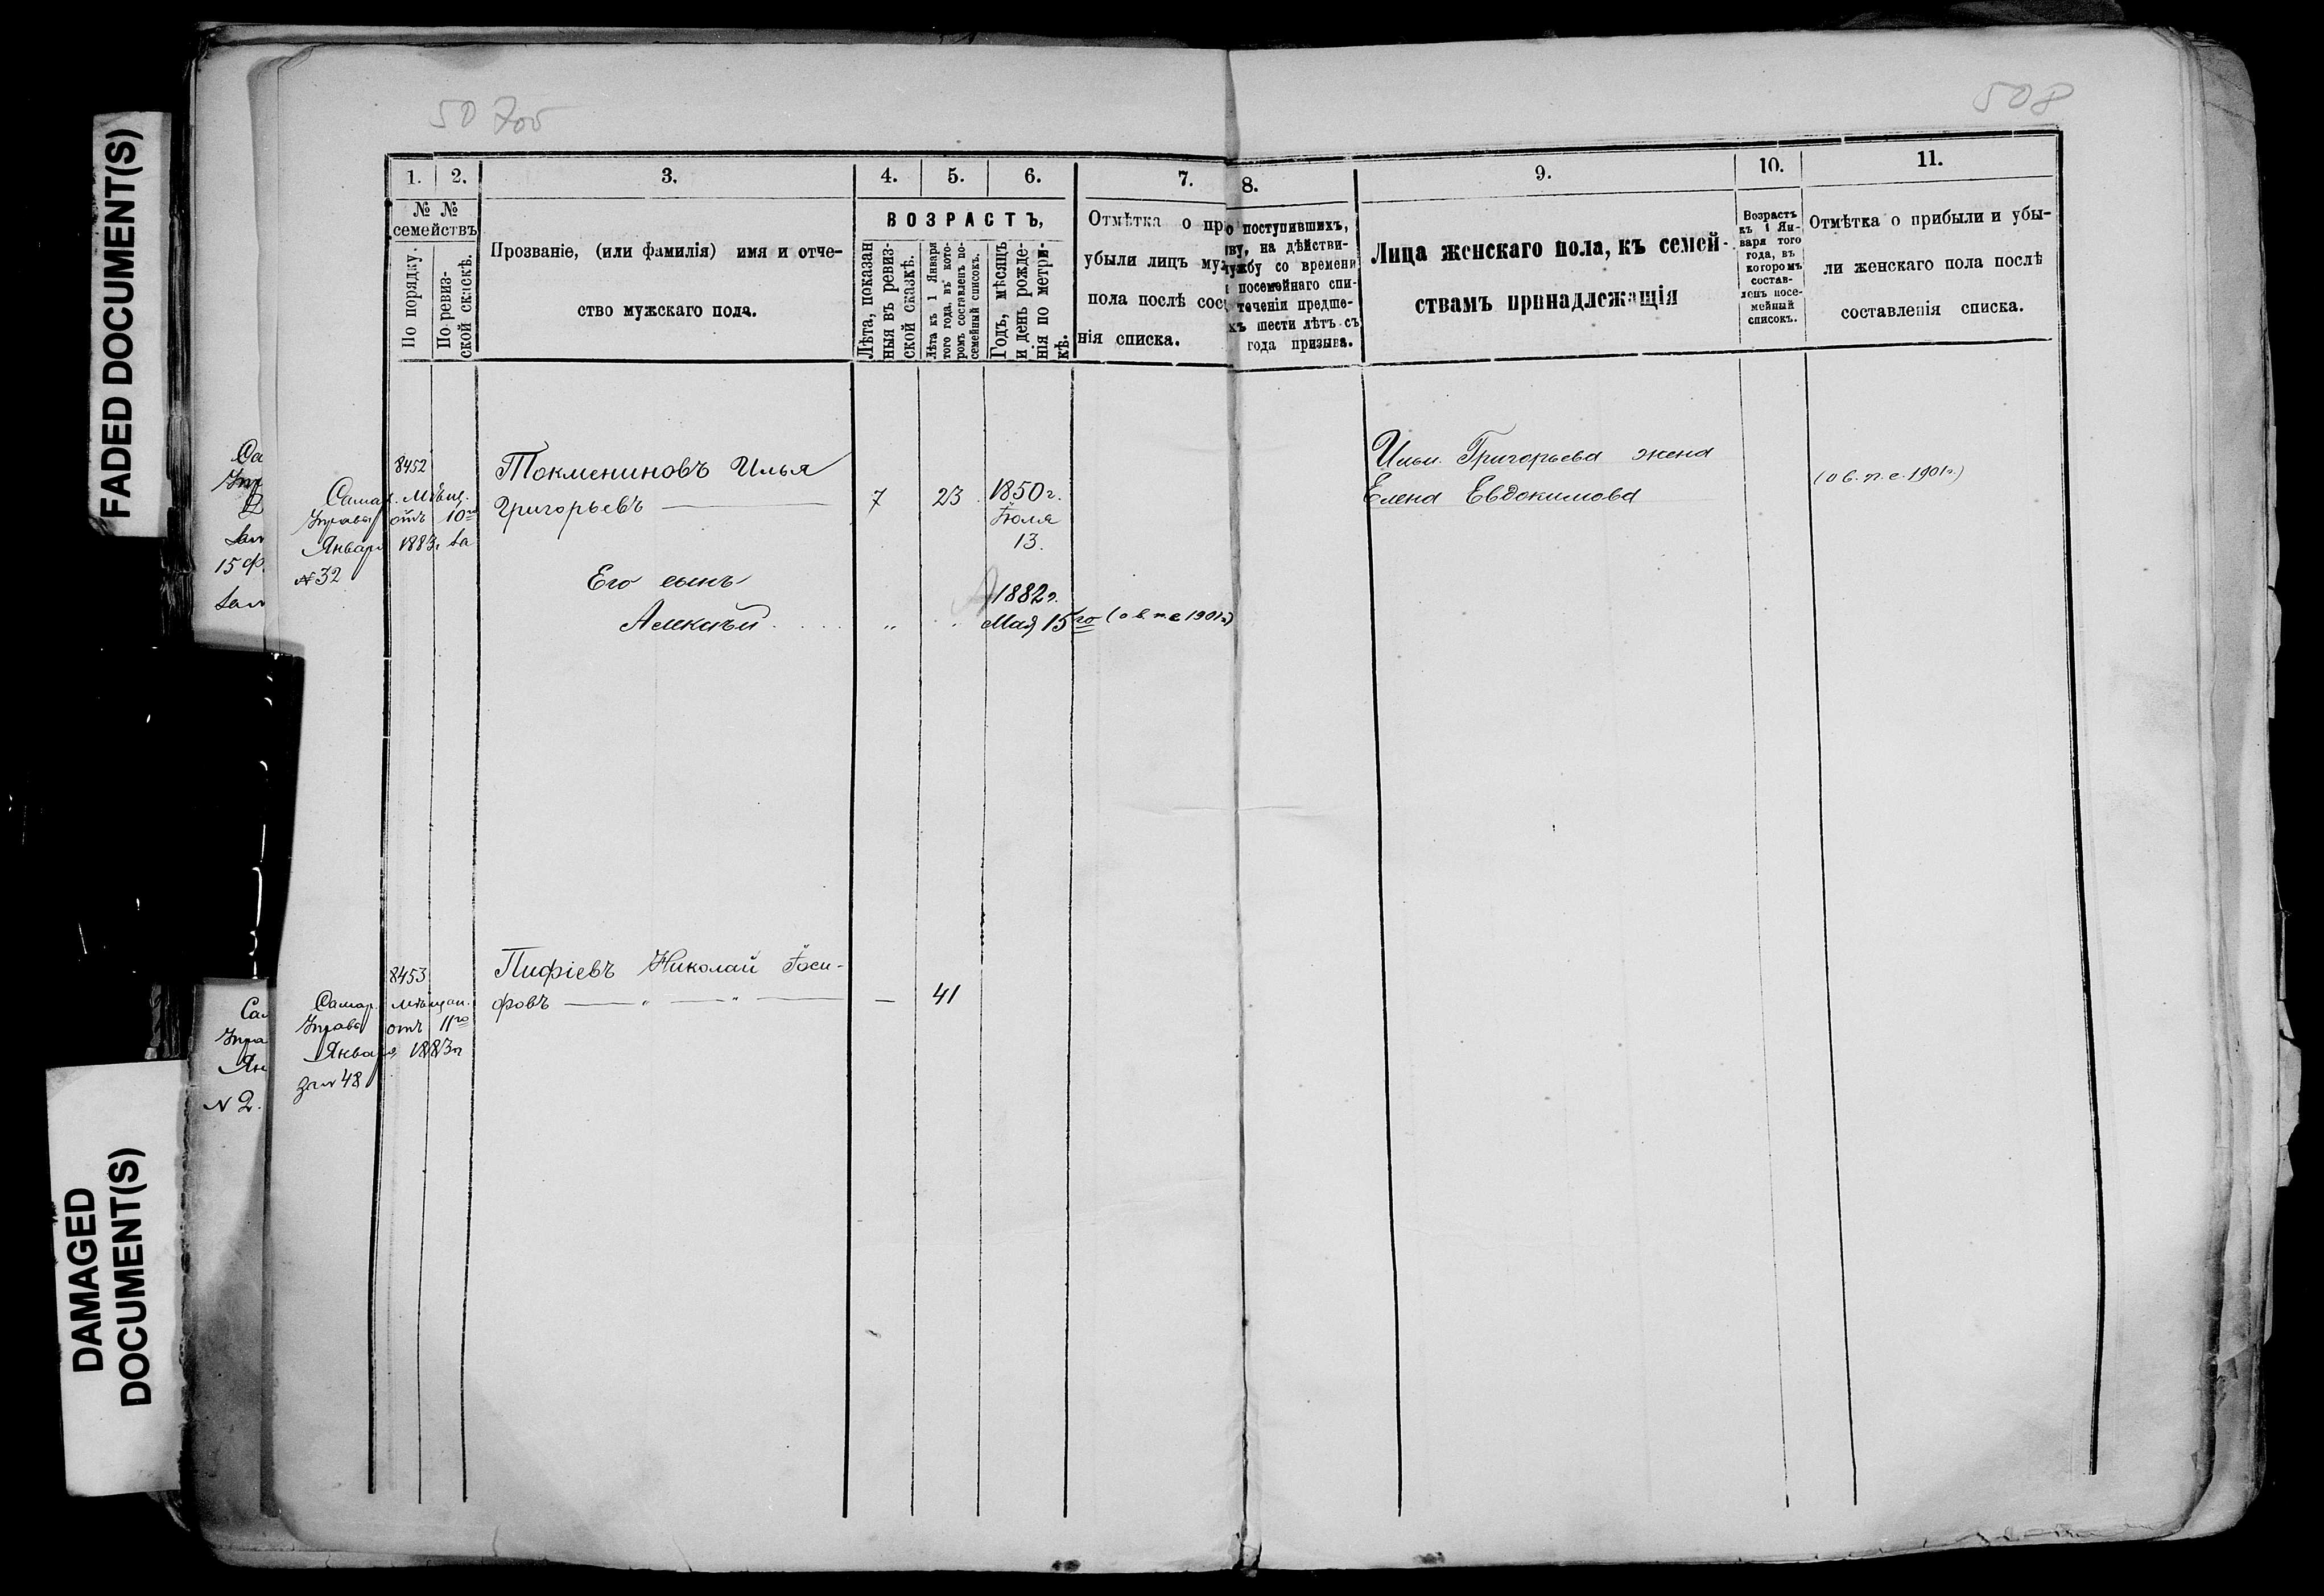 FADED DOCUMENT(S)
DAMAGED
DOCUMENT(S)
508
1. 2. 3. 4. 5. 6. 7. 8. 9. 10. 11.
№ №
семействъ
По порядку.
По ревиз-
ской сказкѣ.
Прозваніе, (или фамилія) имя и отче-
ство мужскаго пола.
ВОЗРАСТЪ,
Лѣта, показан
ныя въ ревиз-
ской сказкѣ.
Лѣта къ 1 Января
того года, въ кото-
ромъ составленъ по-
семейный списокъ.
Годъ, мѣсяцъ
и день рожде-
нія по метри-
кѣ.
Отмѣтка о пр
убыли лицъ му
пола послѣ сос
нія списка.
о поступившихъ,
ву, на дѣйстви-
ужбу со времени
посемейнаго спи-
теченіи предше-
хъ шести лѣтъ съ
года призыва.
Лица женскаго пола, къ семей-
ствамъ принадлежащія
Возрастъ
къ 1 Ян-
варя того
года, въ
которомъ
состав-
ленъ посе-
мейный
списокъ.
Отмѣтка о прибыли и убы-
ли женскаго пола послѣ
составленія списка.
8452
Самар. Мѣщ.
Управы отъ 10го
Января 1883г. за
№ 32
Токмениновъ Илья
Григорьевъ
7 23 1850 г.
Іюля
13.
Его сынъ
Алексѣй
" 1882 г.
Мая 15го (о в. п. с 1901 г.)
Ильи Григорьева жена
Елена Евдокимова
(о в. п. с. 1901 г.)
8453
Самар. мѣщан.
Управы отъ 11го
Января 1883 г.
за № 48
Пифіевъ Николай Іоси-
фовъ — " — " — — 41
Са
Упр
15 ф
Сам
Упра
Ян
№ 2.